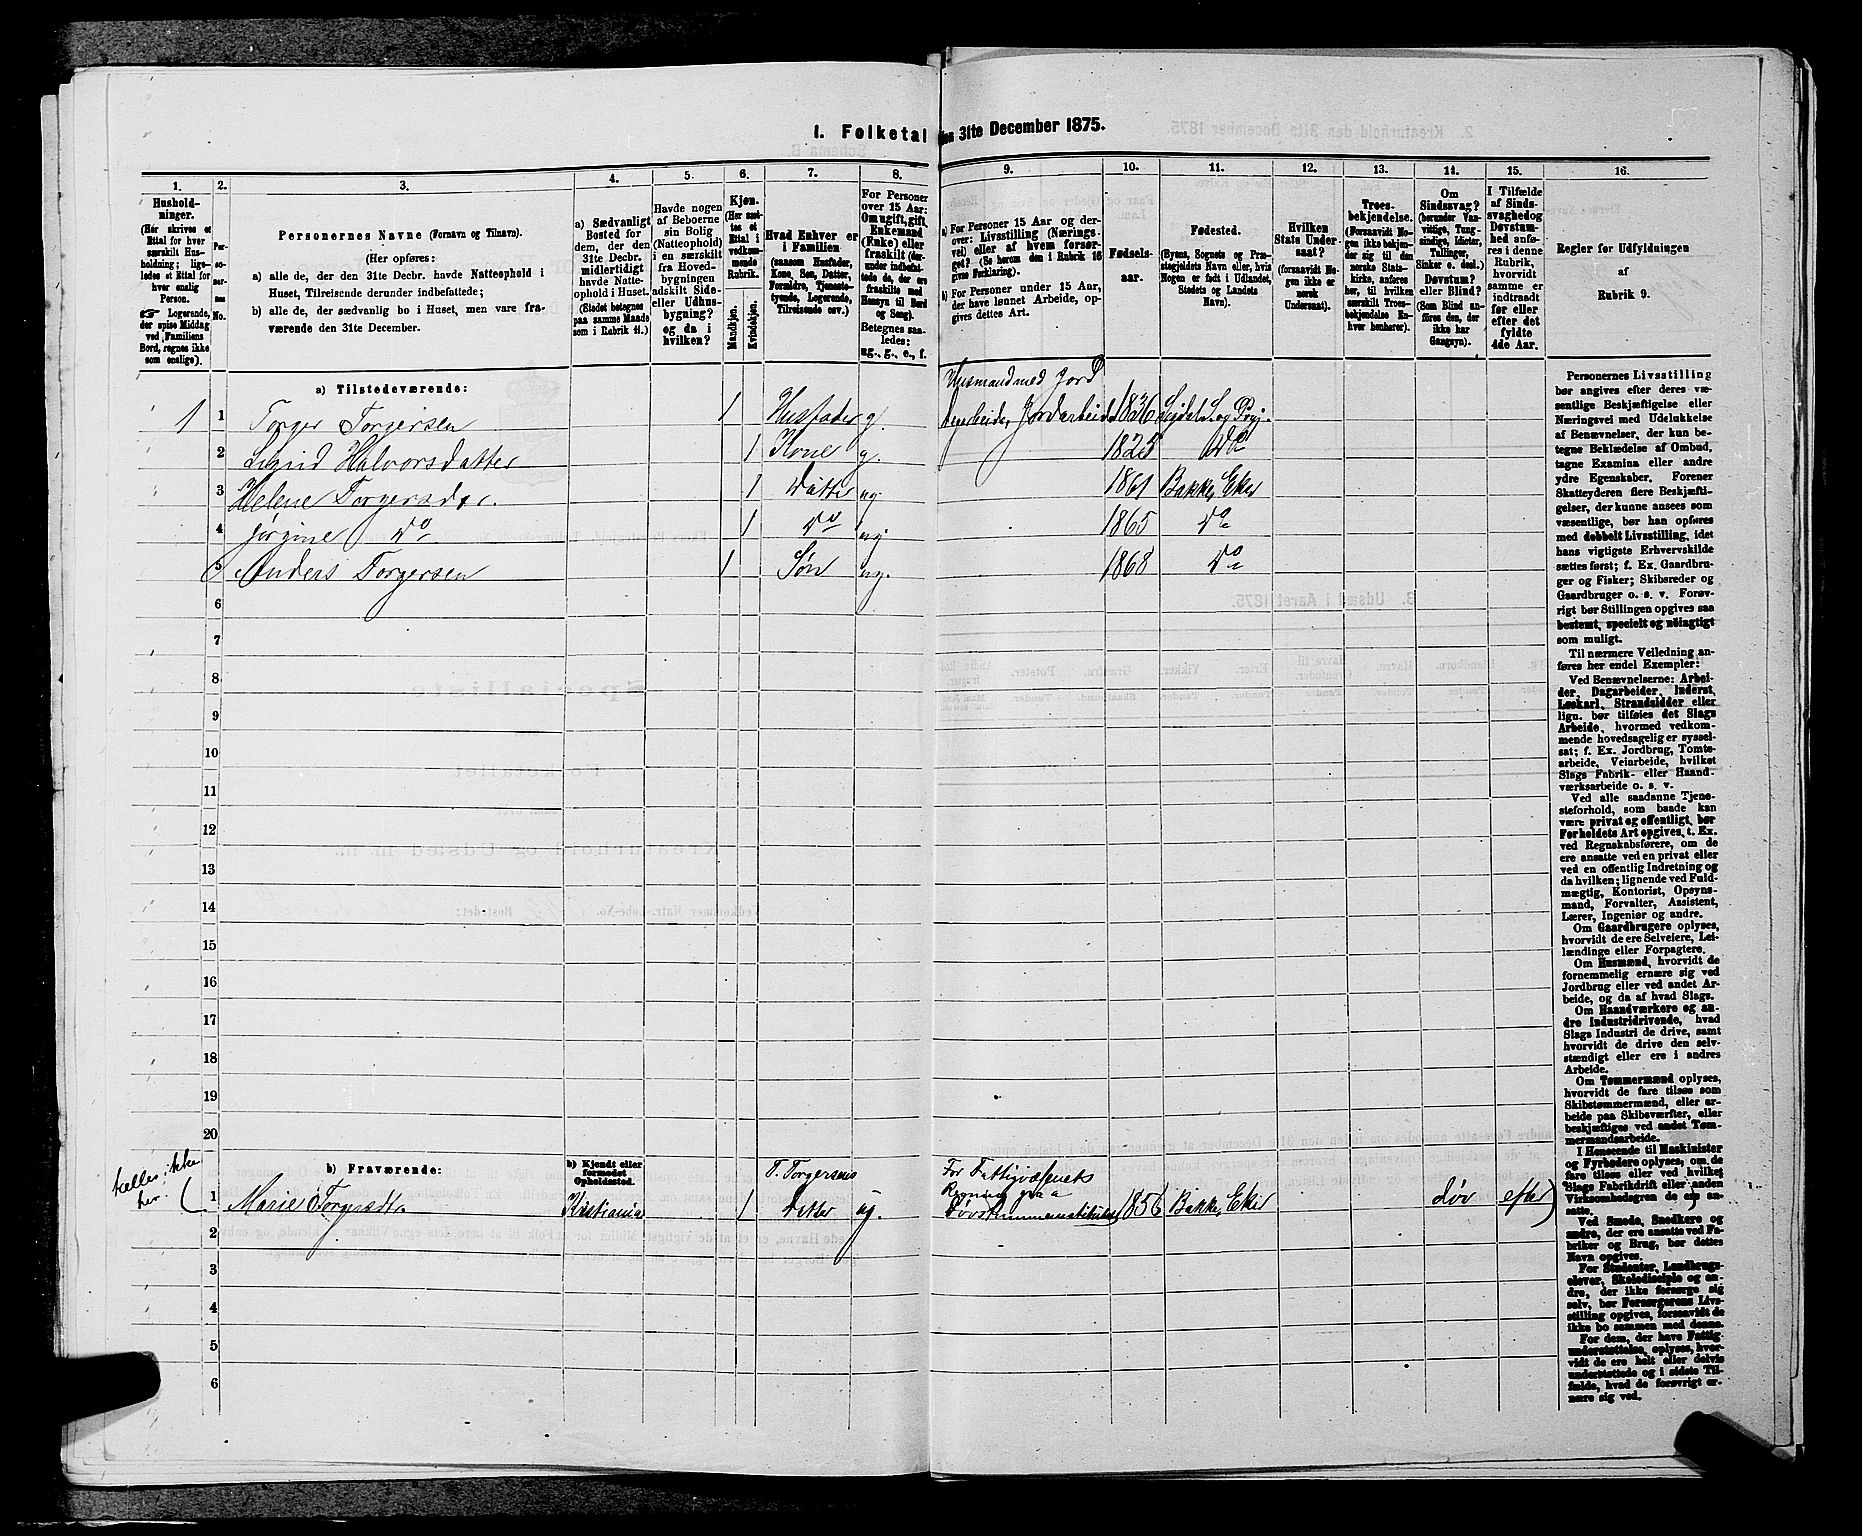 1. Folketal den 31te December 1875.
1.
Hushold-
ninger.
(Her skrives et
Ettal for hver
særskilt Hus-
holdning; lige-
ledes et Ettal for
hver enslig
Person.
☞ Logerende,
der spise Middag
ved Familiens
Bord, regnes ikke
som enslige).
2.
Per-
so-
ner-
nes
No.
3.
Personernes Navne (Fornavn og Tilnavn).
(Her opføres:
a) alle de, der den 31te Decbr. havde Natteophold i
Huset, Tilreisende derunder indbefattede;
b) alle de, der sædvanlig bo i Huset, men vare fra-
værende den 31te December.
4.
a) Sædvanligt
Bosted for
dem, der den
31te Decbr.
midlertidigt
havde Natte-
ophold i Huset.
(Stedet betegnes
paa samme Maade
som i Rubrik 11.)
5.
Havde nogen
af Beboerne
sin Bolig
(Natteophold)
i en særskilt
fra Hoved-
bygningen
adskilt Side-
eller Udhus-
bygning?
og da i
hvilken?
6.
Kjøn.
(Her sæt-
tes et
Ettal i
vedkom-
mende
Rubrik.
Mandkjøn.
Kvindekjøn.
7.
Hvad Enhver er
i Familien
(saasom Husfader,
Kone, Søn, Datter,
Forældre, Tjeneste-
tyende, Logerende,
Tilreisende osv.)
8.
For Personer
over 15 Aar:
Om ugift, gift,
Enkemand
(Enke) eller
fraskilt (der-
under indbefat-
tede de, der ere
fraskilte med
Hensyn til Bord
og Seng).
Betegnes saa-
ledes:
ug., g., e., f.
9.
a) For Personer 15 Aar og der-
over: Livsstilling (Nærings-
vei) eller af hvem forsør-
get? (Se herom den i Rubrik 16
givne Forklaring).
b) For Personer under 15 Aar,
der have lønnet Arbeide, op-
gives dettes Art.
10.
Fødsels-
aar.
11.
Fødested.
(Byens, Sognets og Præ-
stegjeldets Navn eller, hvis
Nogen er født i Udlandet,
Stedets og Landets
Navn).
12.
Hvilken
Stats Under-
saat?
(forsaavidt No-
gen ikke er
norsk
Undersaat).
13.
Troes-
bekjendelse.
(Forsaavidt No-
gen ikke bekjen-
der sig til den
norske Stats-
kirke, anføres
her, til hvilken
særskilt Troes-
bekjendelse En-
hver henhører).
14.
Om
Sindssvag?
(herunder Van-
vittige, Tung-
sindige, Idioter,
Tullinger,
Sinker o. desl.)
Døvstum?
eller Blind?
(Som Blind an-
føres den, der
ikke har
Gangsyn).
15.
I Tilfælde
af Sinds-
svaghed og
Døvstum-
hed anfø-
res i denne
Rubrik,
hvorvidt
samme er
indtraadt
før eller
efter det
fyldte
4de Aar.
16.
Regler for Udfyldningen
af
Rubrik 9.
a) Tilstedeværende:
Husmand med Jord
1 1 Torger Torgersen 1 Husfader g. Jordarbeide 1836
2 Halvorsdatter 1 Kone g. 1825 Do
3 Helene Torgersdr. 1 Datter ug. 1861 Bakke, Eker
4 Jørgine Do 1 Do ug. 1865 Do
5 Anders Torgersen 1 Søn ug. 1868 Do
6
7
8
9
10
11
12
13
14
15
16
17
18
19
20
tælles ikke
her.
b) Fraværende:
b) Kjendt eller
formodet
Opholdssted.
T. Torgersens
For Fattigvæsenets
Regning paa
1 Marie Torgersdtr Kristiania 1 Datter ug. Døvstummeinstitutet 1856 Bakke, Eker døv efter
2
3
4
5
6
Personernes Livsstilling
bør angives efter deres væ-
sentlige Beskjæftigelse eller
Næringsvei med Udelukkelse
af Benævnelser, der kun be-
tegne Beklædelse af Ombud,
tagne Examina eller andre
ydre Egenskaber. Forener
Skatteyderen flere Beskjæfti-
gelser, der kunne ansees som
væsentlige, bør han opføres
med dobbelt Livsstilling, idet
hans vigtigste Erhvervskilde
sættes først; f. Ex. Gaardbru-
ger og Fisker; Skibsreder og
Gaardbruger o. s. v. Forøv-
rigt bør Stillingen opgives saa
bestemt, specielt og nøiagtigt
som muligt.
Til nærmere Veiledning an-
føres her endel Exempler:
Ved Benævnelserne: Arbei-
der, Dagarbeider, Inderst,
Løskarl, Strandsidder eller
lign. bør tilføies det Slags
Arbeide, hvormed vedkom-
mende hovedsagelig er syssel-
sat; f. Ex. Jordbrug, Tomte-
arbeide, Veiarbeide, hvilket
Slags Fabrik- eller Haand-
værksarbeide o. s. v.
Ved alle saadanne Tjene-
steforhold, som baade kan
være privat og offentligt, bør
Forholdets Art opgives, t. Ex.
ved Regnskabsførere, om de
ere ansatte ved en privat eller
ved en offentlig Indretning og
da hvilken; lignende ved Fuld-
mægtig, Kontorist, Opsyns-
mand, Forvalter, Assistent,
Lærer, Ingeniør og andre.
Om Gaardbrugere oplyses,
hvorvidt de ere Selveiere, Lei-
lændinge eller Forpagtere.
Om Husmænd, hvorvidt de
fornemmelig ernære sig ved
Jordbrug eller ved andet Ar-
beide, og da af hvad Slags.
Om Haandværkere og an-
dre Industridrivende, hvad
Slags Industri de drive, samt
hvorvidt de drive den selv-
stændigt eller ere i andres
Arbeide.
Om Tømmermænd oplyses,
hvorvidt de fare tilsøs som
Skibstømmermænd, eller ar-
beide paa Skibsværfter, eller
beskjæftiges ved andet Tøm-
mermandsarbeide.
I Henseende til Maskinister
og Fyrbødere oplyses, om de
fare tilsøs eller ved hvilket
Slags Fabrikdrift eller anden
Virksomhedsgren de ere an-
satte.
Ved Smede, Snedkere og
andre, der ere ansatte ved Fa-
briker og Brug, bør dettes
Navn opgives.
For Studenter, Landbrugs-
elever, Skoledisciple og an-
dre, der ikke forsørge sig
selv, bør Forsørgerens Livs-
stilling opgives, forsaavidt de
ikke bo sammen med denne.
For dem, der have Fattig-
understøttelse, oplyses, hvor-
vidt de ere helt eller delvis
understøttede og i sidste Til-
fælde, hvad de forøvrigt er-
nære sig ved.